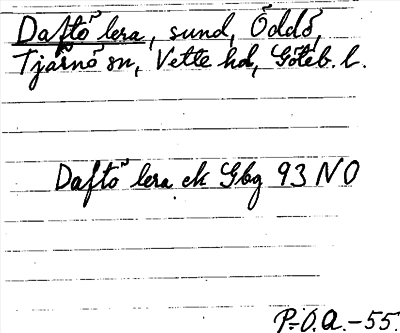 Daftö lera, sund, Öddö,
Tjärnö sn, Vette hd, Göteb. l.
Daftö lera ek Gbg 93 NO
P-O.A. -55.